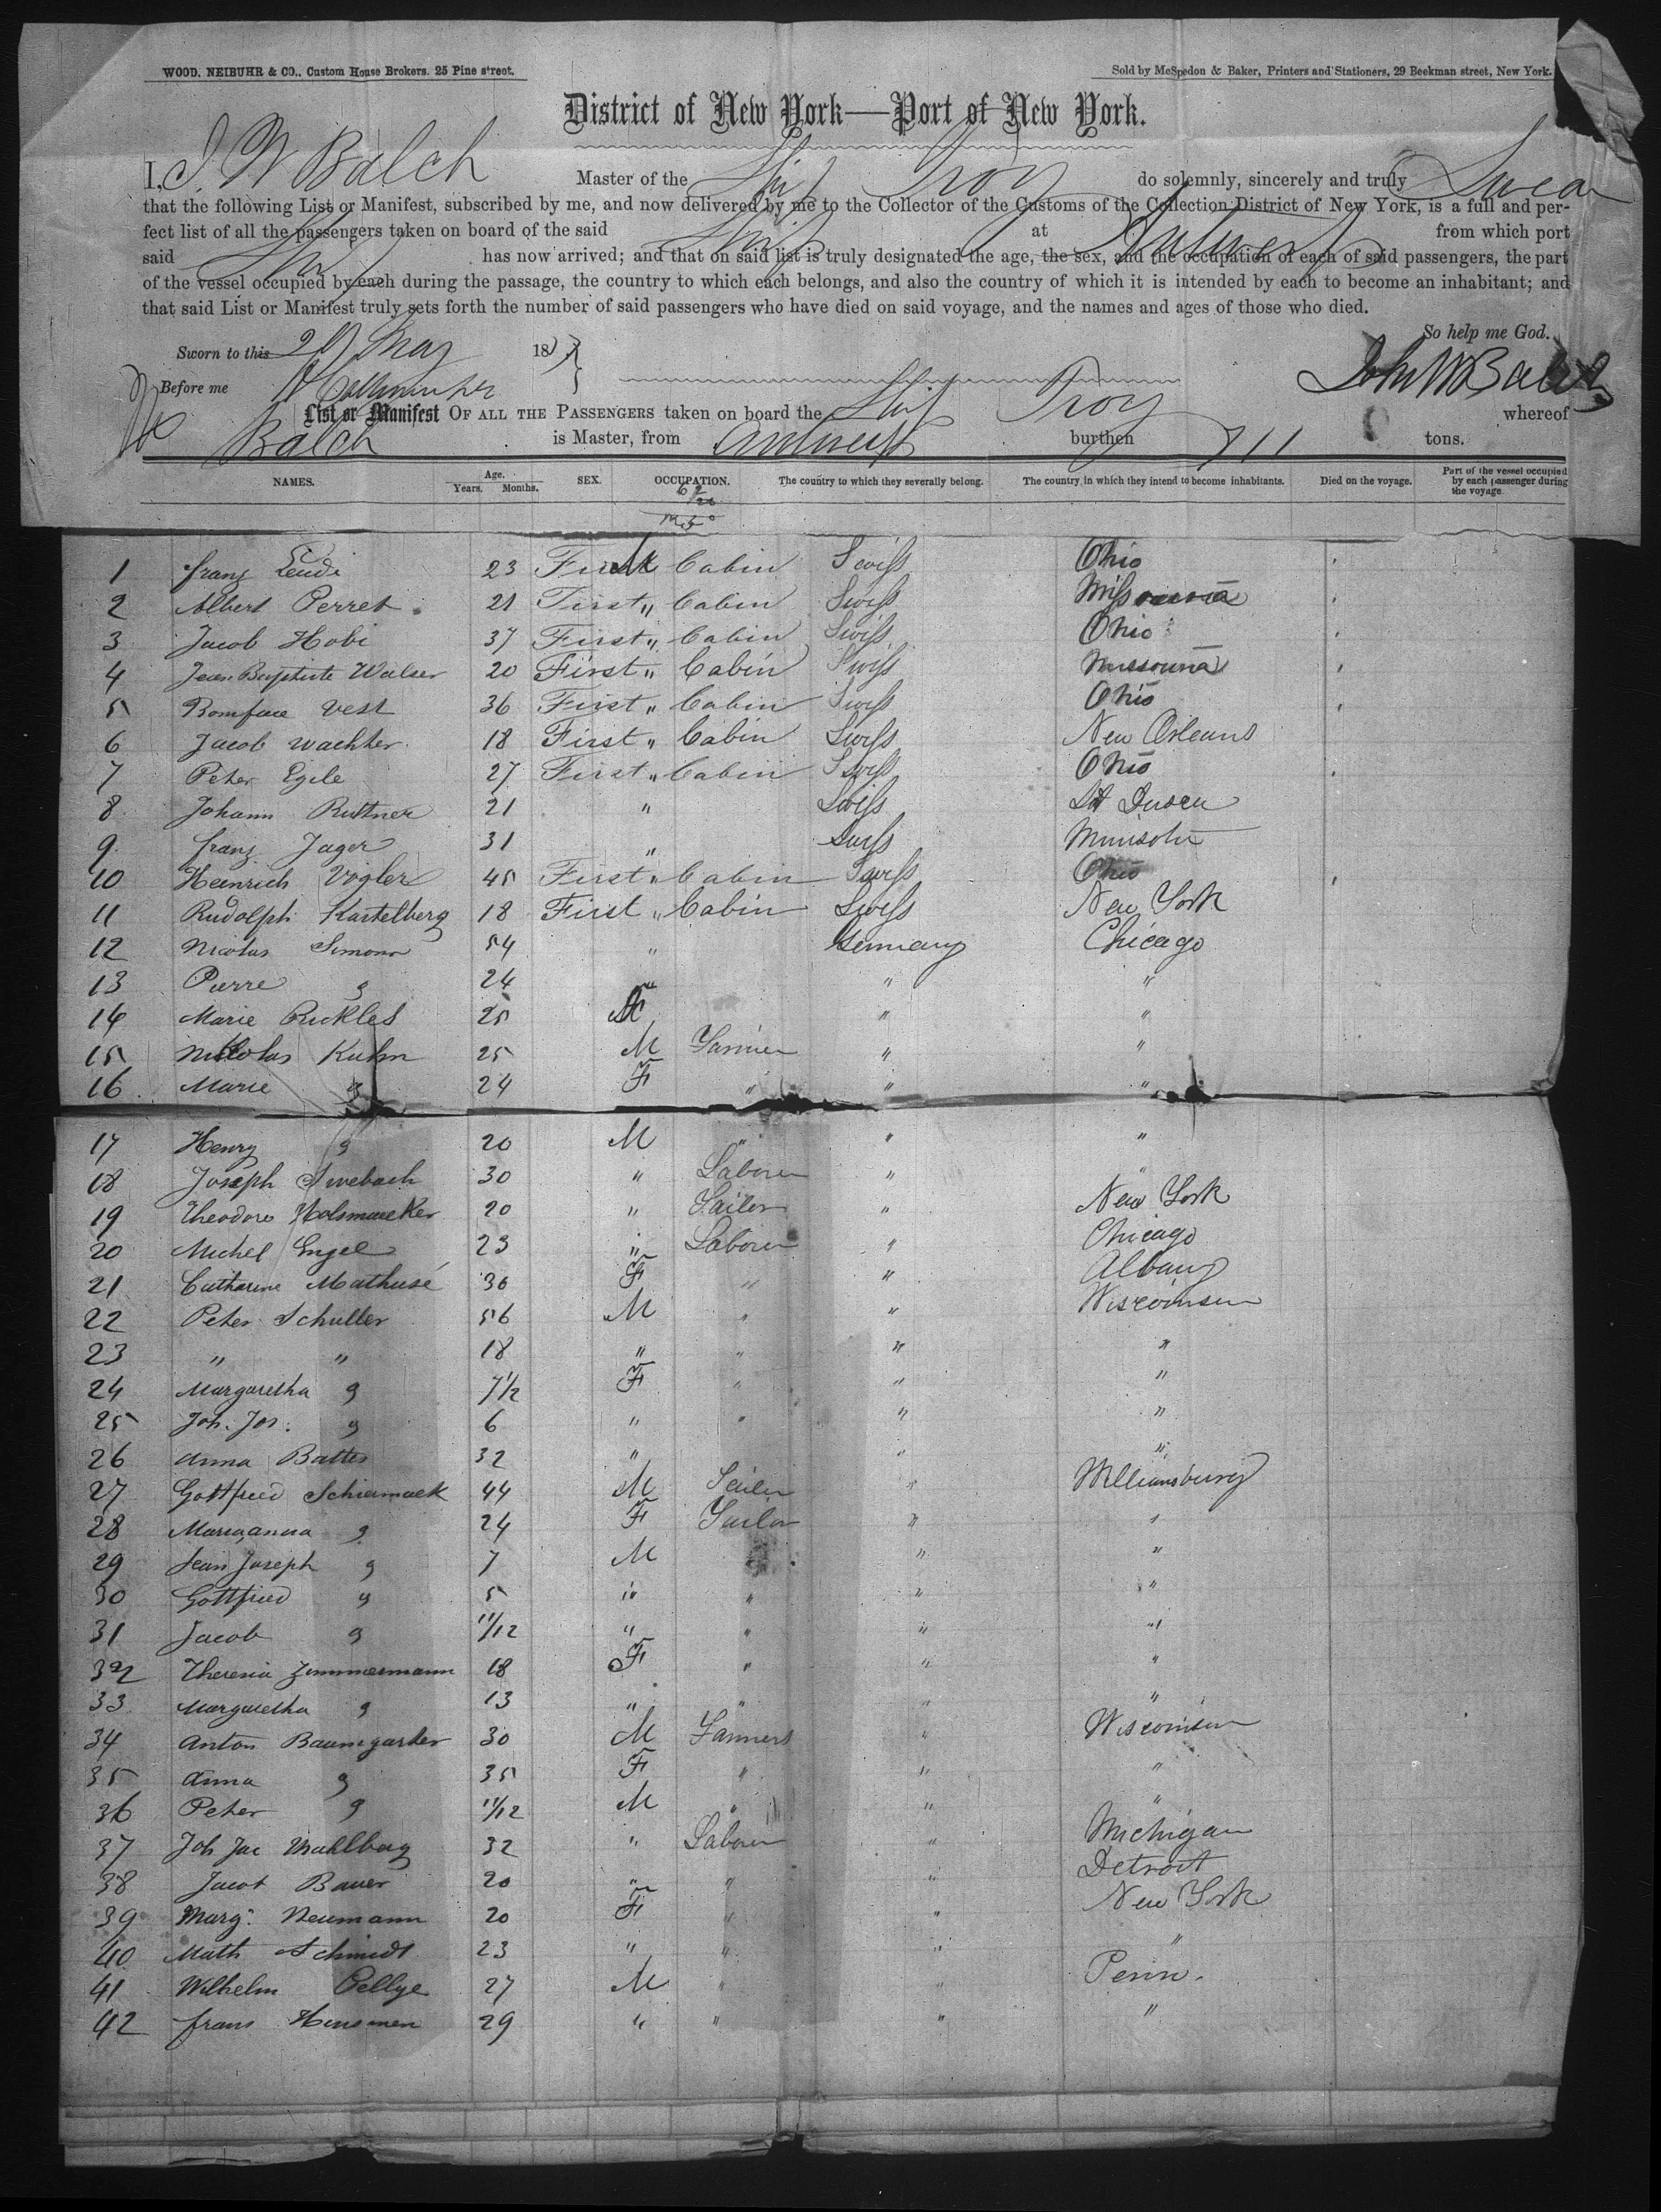 WOOD. NEIBUHR & CO., Custom House Brokers. 25 Pine street.
Sold by McSpedon & Baker, Printers and Stationers, 29 Beekman street, New York.
District of New York—Port of New York.
I, J. W Balch Master of the Ship Troy do solemnly, sincerely and truly Swear
that the following List or Manifest, subscribed by me, and now delivered by me to the Collector of the Customs of the Collection District of New York, is a full and per-
fect list of all the passengers taken on board of the said Ship at Antwerp from which port
said Ship has now arrived; and that on said list is truly designated the age, the sex, and the occupation of each of said passengers, the part
of the vessel occupied by each during the passage, the country to which each belongs, and also the country of which it is intended by each to become an inhabitant; and
that said List or Manifest truly sets forth the number of said passengers who have died on said voyage, and the names and ages of those who died.
So help me God.
Sworn to this 29 May 18
John W Balch
Before me
List or Manifest OF ALL THE PASSENGERS taken on board the Ship Troy whereof
Balch is Master, from Antwerp burthen 711 tons.
NAMES. Age. Years. Months. SEX. OCCUPATION. The country to which they severally belong. The country in which they intend to become inhabitants. Died on the voyage. Part of the vessel occupied by each passenger during the voyage
1 franz 23 First M Cabin Swiss Ohio
2 Albert Perret 21 First " Cabin Swiss
3 Jacob Hobi 37 First " Cabin Swiss Ohio
4 Jean Baptiste Walser 20 First " Cabin Swiss Missouria
5 Boniface Vest 36 First " Cabin Swiss Ohio
6 Jacob Wachter 18 First " Cabin Swiss New Orleans
7 Peter Egile 27 First " Cabin Swiss Ohio
8 Johann Ruttner 21 " Swiss
9 franz Jager 31 " Swiss
10 Heinrich Vogler 45 First " Cabin Swiss Ohio
11 Rudolph Kastelberg 18 First " Cabin Swiss New York
12 Nicolas Simonn 54 " Germany Chicago
13 Pierre " 24 " " "
14 Marie Rickles 25 " "
15 Nicolas Kuhn 25 M Farmer " "
16 Marie " 24 F " " "
17 Henry " 20 M " " "
18 Joseph 30 " Laborer " "
19 Theodore 20 " Sailor " New York
20 Michel Engel 23 " Laborer " Chicago
21 Catharine Mathusé 30 F " " Albany
22 Peter Schuller 56 M " " Wisconsin
23 " " 18 " " " "
24 Margaretha " 7 1/2 F " " "
25 Joh. Jos. " 6 " " " "
26 Anna Battes 32 " " "
27 Gottfried 44 M " Williamsburg
28 Marieanna " 24 F " "
29 Jean Joseph " 7 M " "
30 Gottfried " 5 " " " "
31 Jacob " 11/12 " " " "
32 Theresia Zimmermann 18 F " " "
33 Margaretha " 13 " " " "
34 Anton Baumgarter 30 M Farmers " Wisconsin
35 Anna " 35 F " " "
36 Peter " 11/12 M " " "
37 Joh Jac Mahlberg 32 " Laborer " Michigan
38 Jacob Bauer 20 " " " Detroit
39 Marg. Neumann 20 F " " New York
40 Math Schmidt 23 " " " "
41 Wilhelm Pellge 27 M " " Penn.
42 frans Hensmen 29 " " " "